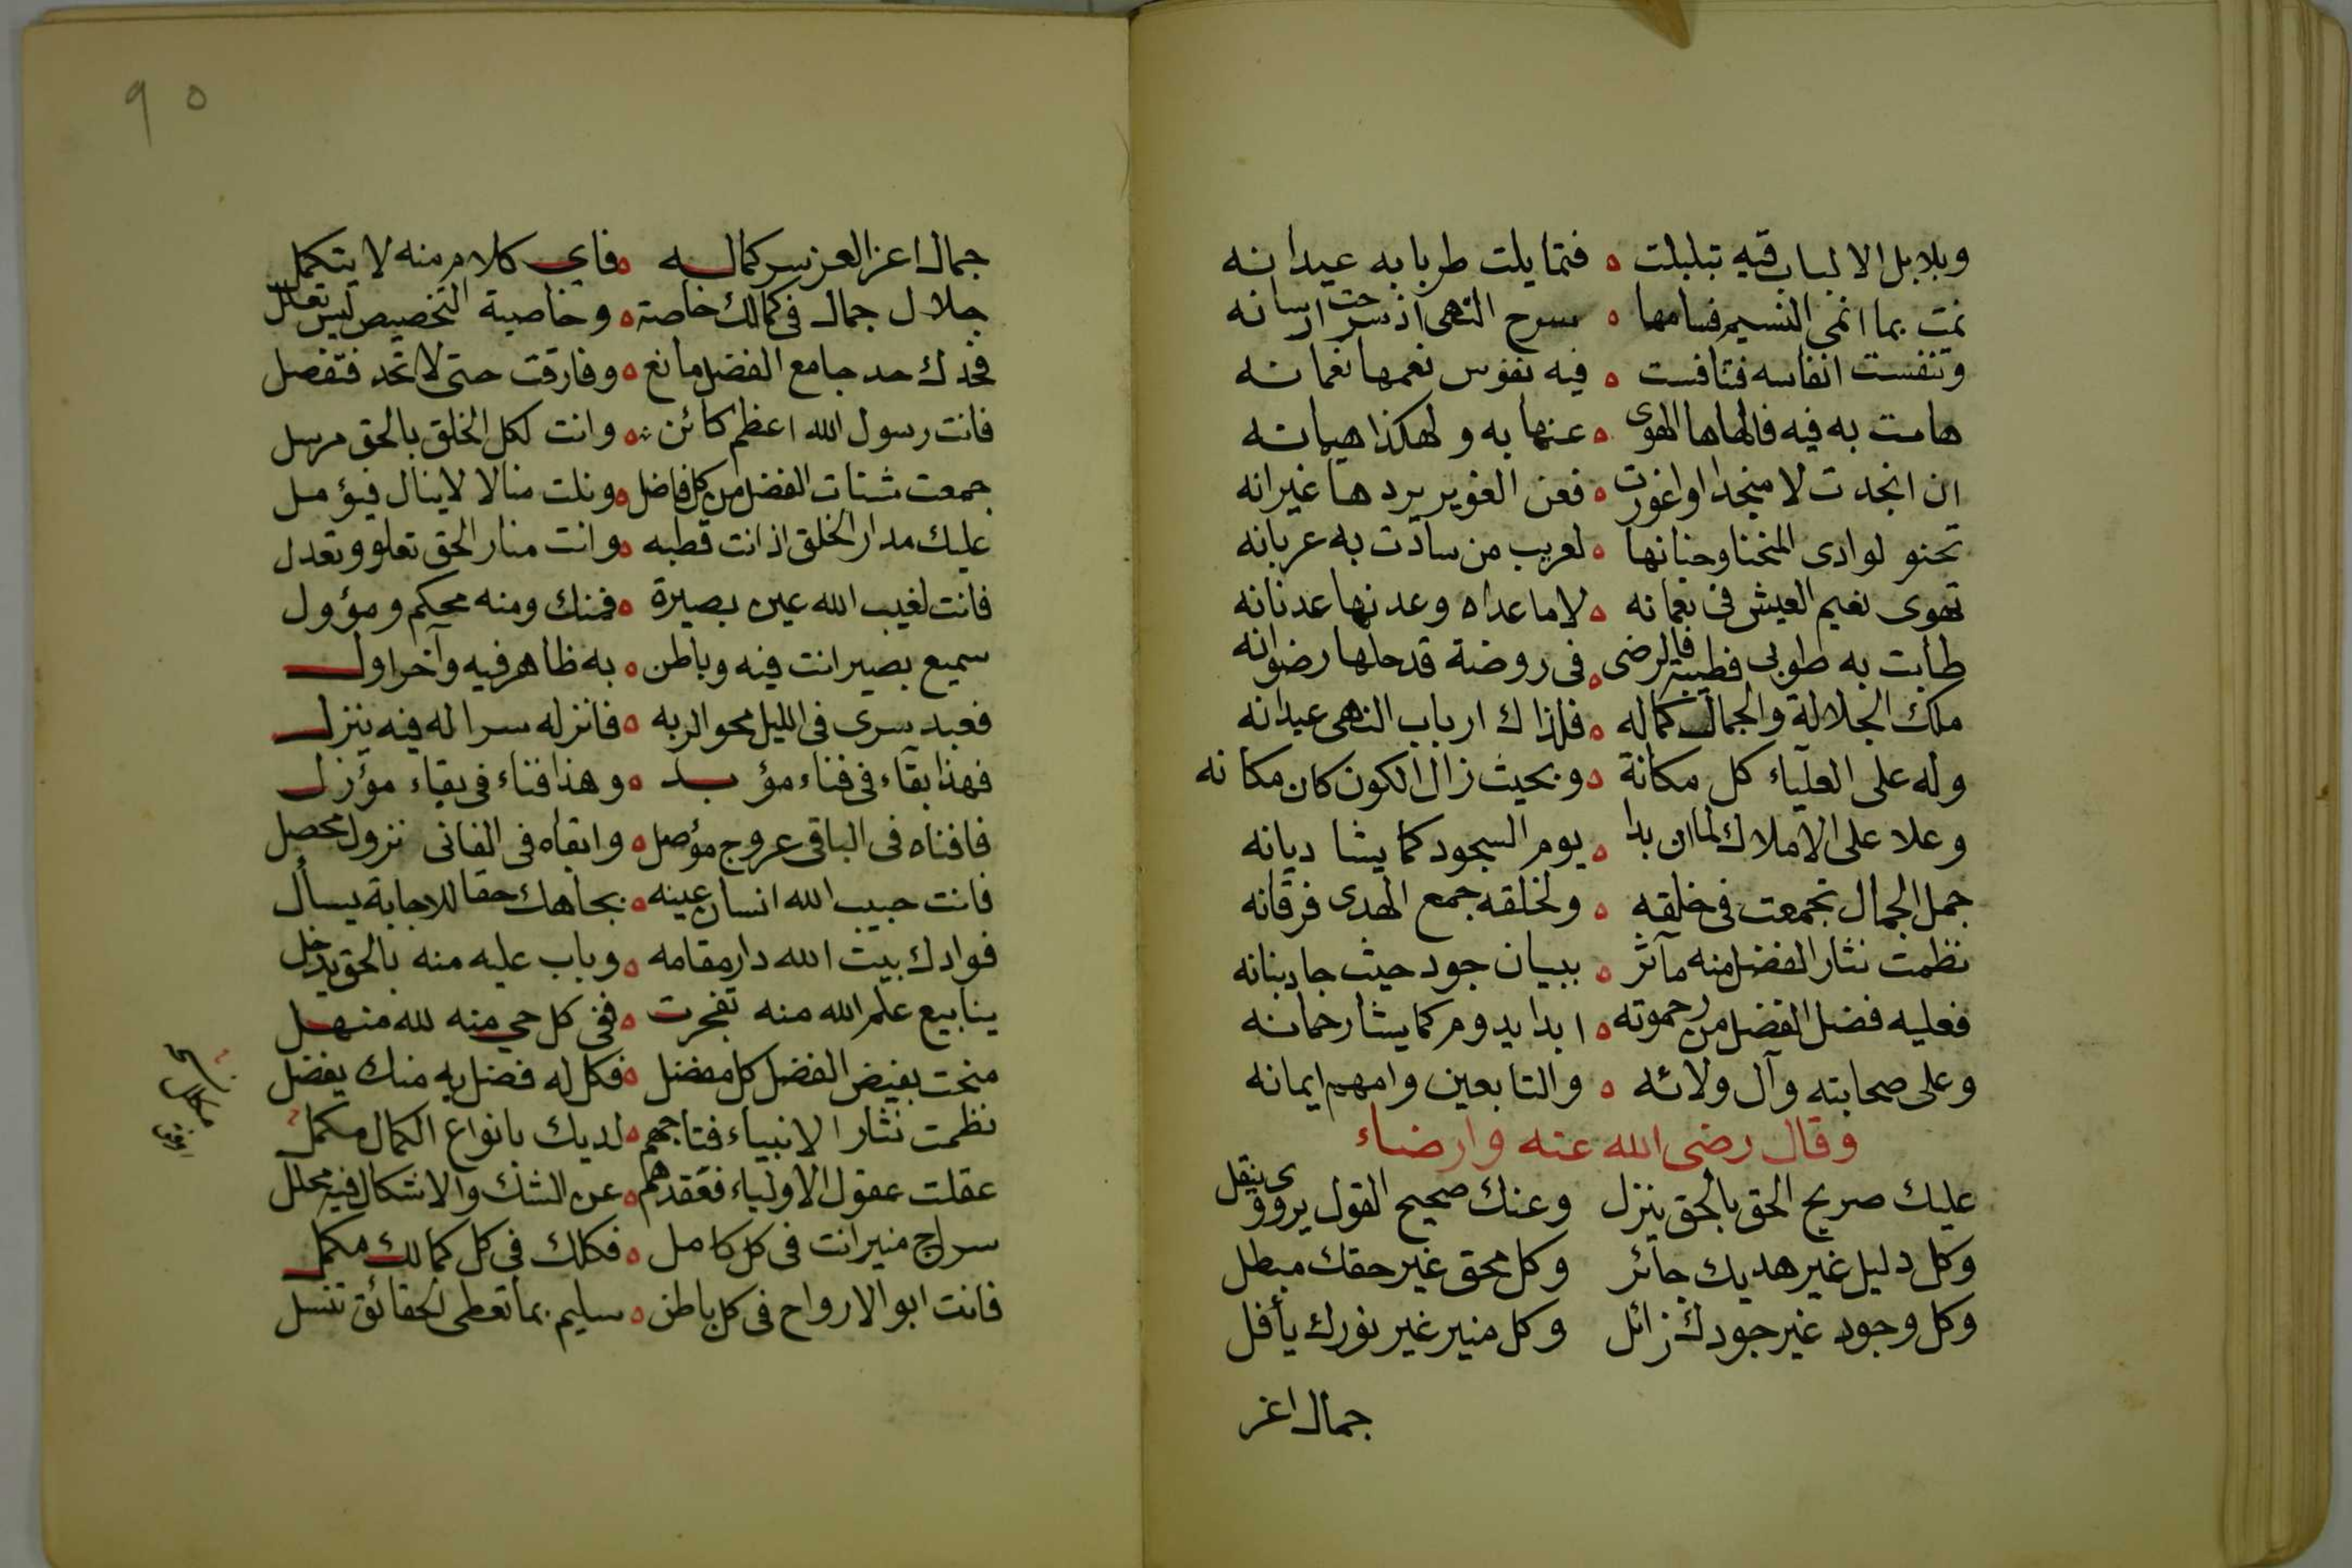 وبلابل الالباب فيه تبلبلت ه فتمايلت طربا به عيدانه
نمت بما انمى النسيم فسامها ه سرح النهى اذ سرحت ارسانه
وتنفست انفاسه فتنافست ه فيه نفوس نعمها نعمانه
هامت به فيه فالهاها الهوى ه عنها به ولهكذا هيمانه
ان انجدت لا منجدا او اغورت ه فعن الغوير يردها غيرانه
تحنو لوادى المنحنا وحنانها ه لعريب من سادت به عربانه
تهوى نعيم العيش فى نعمانه ه لا ما عداه وعدنها عدنانه
طابت به طوبى فطيبة فالرضى ه فى روضة قد حلها رضوانه
ملك الجلالة والجمال كماله ه فلذاك ارباب النهى عيدانه
وله على العلياء كل مكانة ه وبحيث زال الكون كان مكانه
وعلا على الاملاك لما ان بدا ه يوم السجود كما يشا ديانه
جمل الجمال تجمعت فى خلقه ه ولخلقه جمع الهدى فرقانه
نظمت نثار الفضل منه مآثر ه ببيان جود حيث جاد بنانه
فعليه فضل الفضل من رحموته ه ابدا يدوم كما يشا رحمانه
وعلى صحابته وآل ولائه ه والتابعين وامهم ايمانه
وقال رضى الله عنه وارضاء
عليك صريح الحق بالحق ينزل وعنك صحيح القول يروى وينقل
وكل دليل غير هديك جائر وكل محق غير حقك مبطل
وكل وجود غير جودك زائل وكل منير غير نورك يأفل
جمال اغر
٩٥
جمال اعز العز سر كماله ه فاى كلام منه لا يتكمل
جلال جمال فى كمالك خاصة ه وخاصية التخصيص ليس تعلل
فحدك حد جامع الفضل مانع ه وفارقت حتى لا تحد فتفصل
فانت رسول الله اعظم كائن ه وانت لكل الخلق بالحق مرسل
جمعت شتات الفضل من كل فاضل ه ونلت منالا لا ينال فيؤمل
عليك مدار الخلق اذ انت قطبه ه وانت منار الحق تعلو وتعدل
فانت لغيب الله عين بصيرة ه فمنك ومنه محكم ومؤول
سميع بصير انت فيه وباطن ه به ظاهر فيه وآخر اول
فعبد سرى فى الليل محوا لربه ه فانزله سرا له فيه ينزل
فهذا بقاء فى فناء مؤبد ه وهذا فناء فى بقاء مؤزل
فافناه فى الباقى عروج مؤصل ه وابقاه فى الفانى نزول محصل
فانت حبيب الله انسان عينه ه بجاهك حقا للاجابة يسأل
فوادك بيت الله دار مقامه ه وباب عليه منه بالحق يدخل
ينابيع علم الله منه تفجرت ه ففى كل حي منه لله منهل
منحت بفيض الفضل كل مفضل ه فكل له فضل به منك يفضل
نظمت نثار الانبياء فتاجهم ه لديك بانواع الكمال مكمل
عقلت عقول الاولياء فعقدهم ه عن الشك والاشكال فيه محلل
سراج منير انت فى كل كامل ه فكلك فى كل كمالك مكمل
فانت ابو الارواح فى كل باطن ه سليم بما تعطى الحقائق تنسل